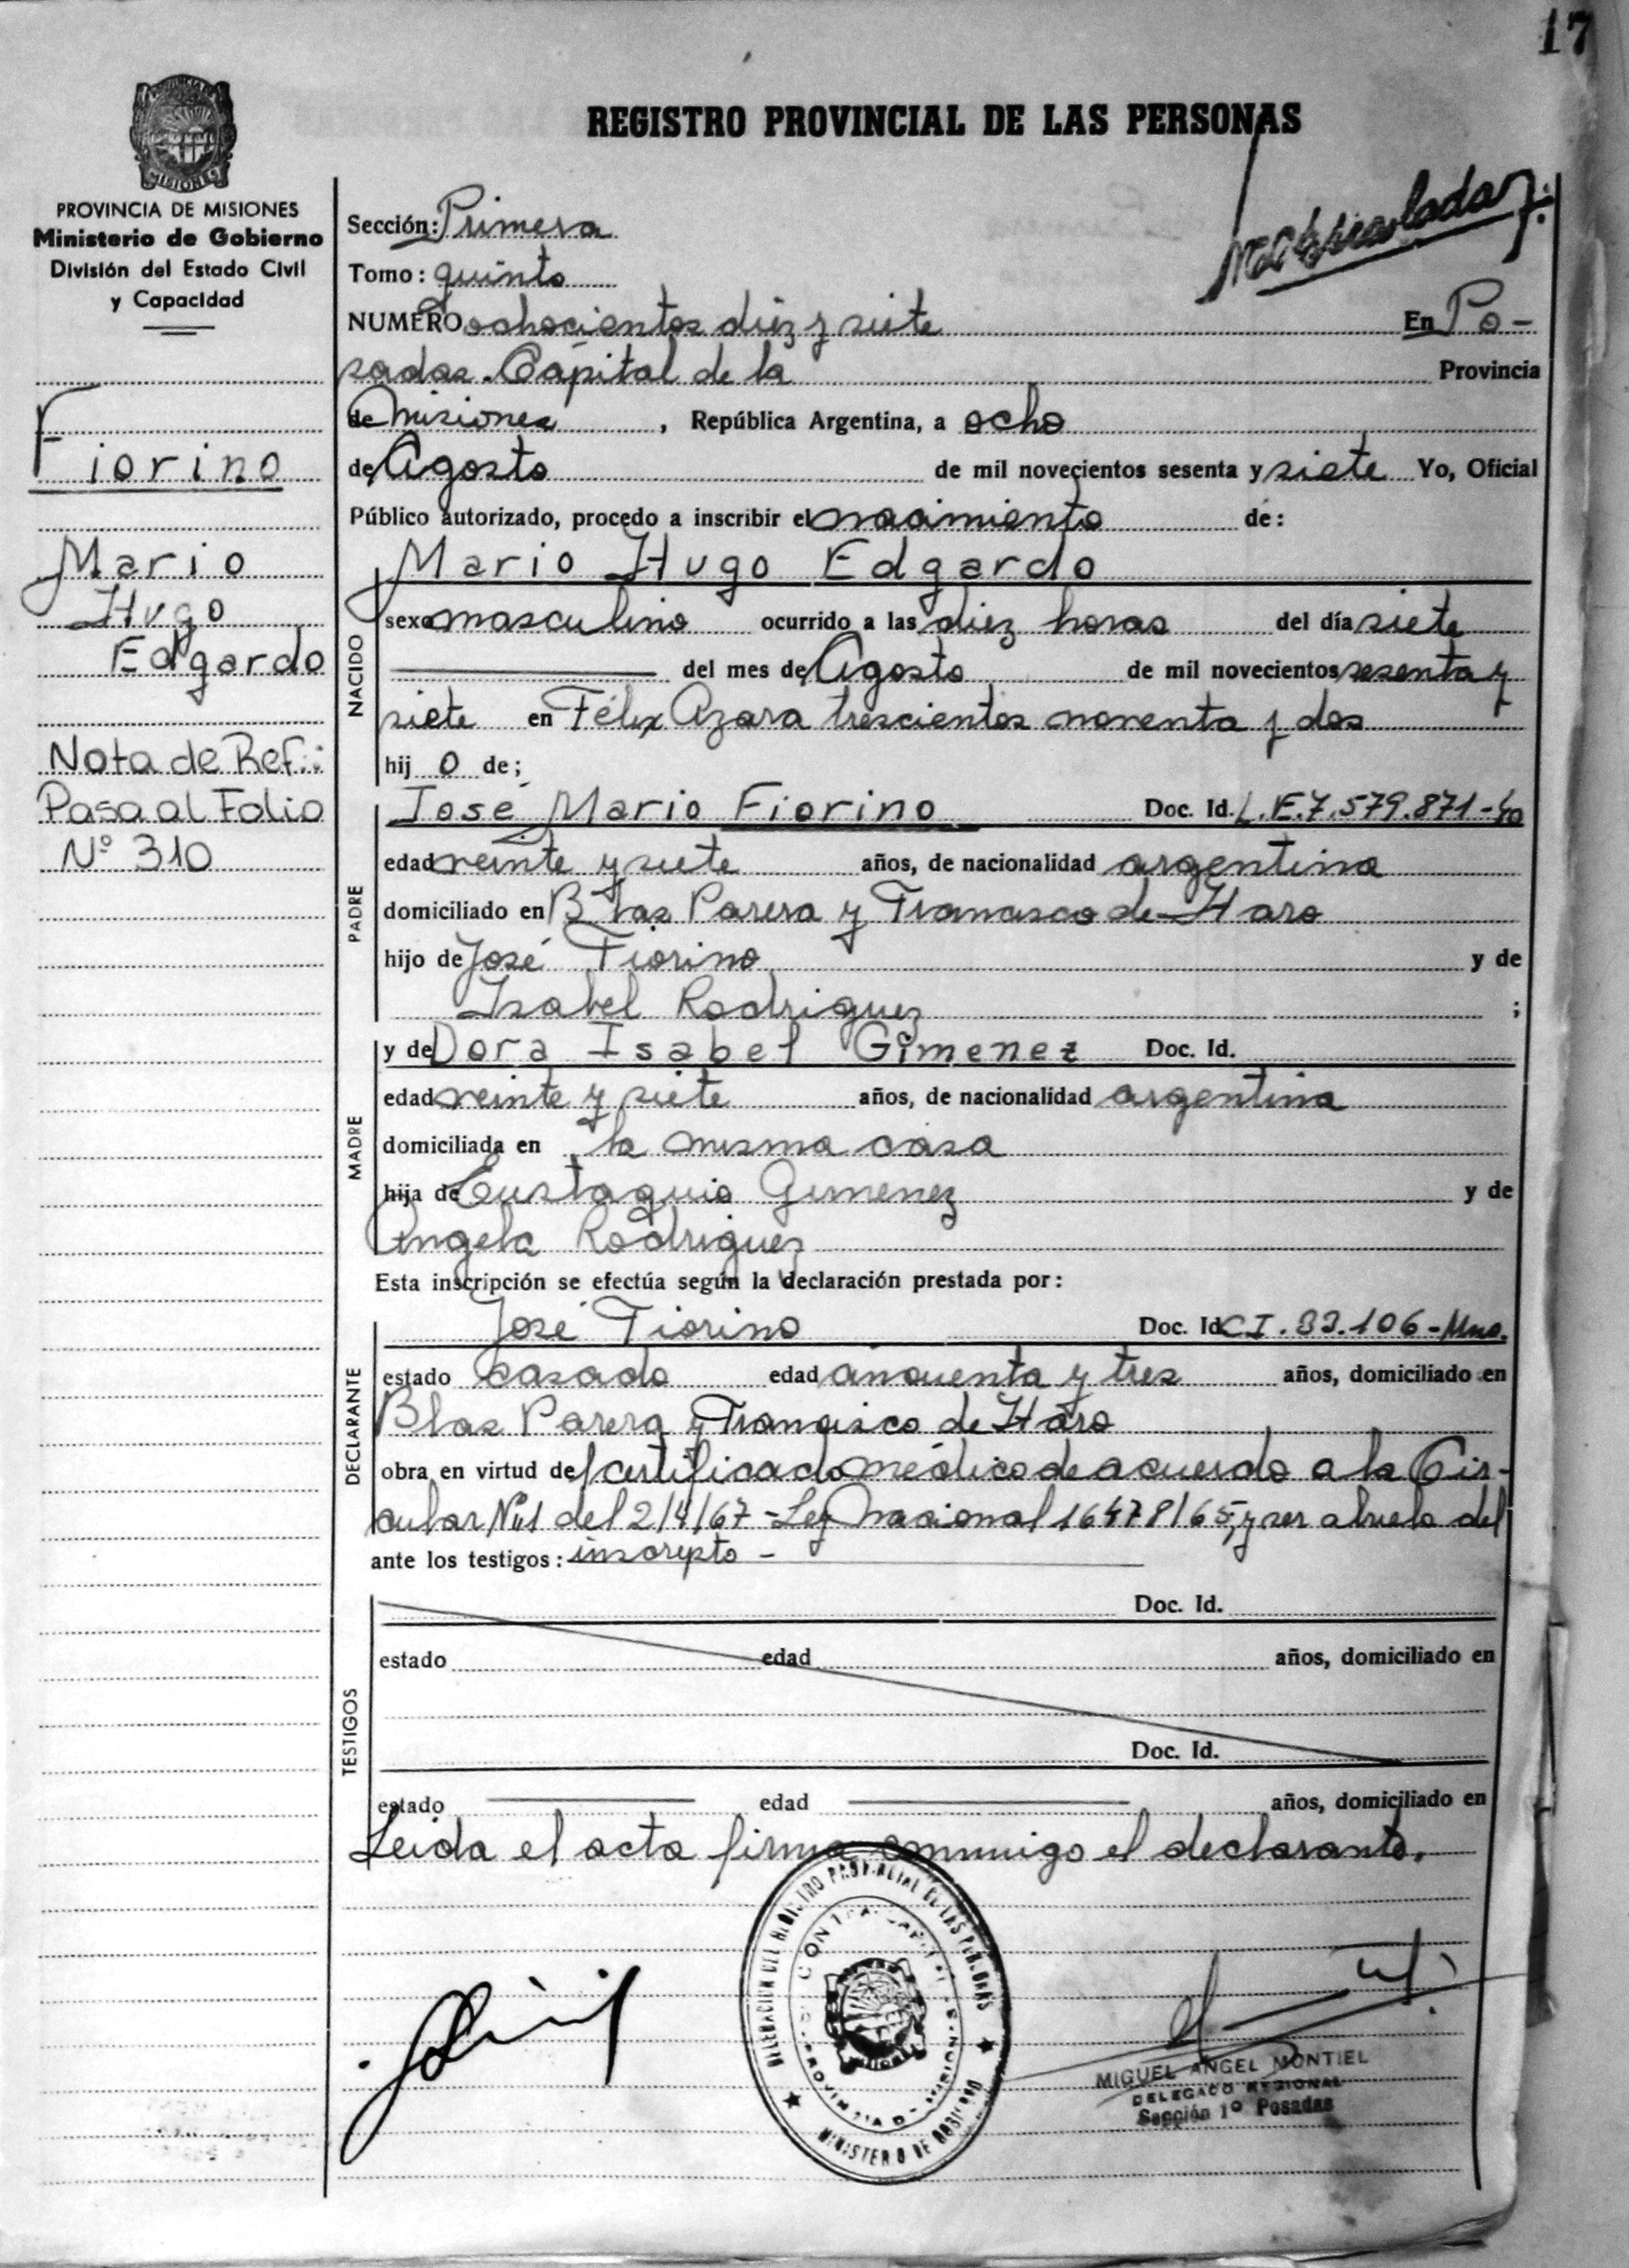 17
REGISTRO PROVINCIAL DE LAS PERSONAS
MISIONES
PROVINCIA DE MISIONES
Ministerio de Gobierno
División del Estado Civil
y Capacidad
Fiorino
Mario
Hugo
Edgardo
Nota de Ref.:
Pasa al Folio
Nº 310
Sección: Primera
Tomo: quinto
NUMERO ochocientos diez y siete En Po-
sadas. Capital de la Provincia
de Misiones, República Argentina, a ocho
de Agosto de mil novecientos sesenta y siete Yo, Oficial
Público autorizado, procedo a inscribir el nacimiento de:
NACIDO
Mario Hugo Edgardo
sexo masculino ocurrido a las diez horas del día siete
del mes de Agosto de mil novecientos sesenta y
siete en Félix Azara trescientos noventa y dos
hij o de;
PADRE
José Mario Fiorino Doc. Id. L.E.7.579.871-
edad veinte y siete años, de nacionalidad argentina
domiciliado en Blas Parera y Francisco de Haro
hijo de José Fiorino y de
Isabel Rodriguez ;
MADRE
y de Dora Isabel Gimenez Doc. Id.
edad veinte y siete años, de nacionalidad argentina
domiciliada en la misma casa
hija de Eustaquio Gimenez y de
Angela Rodriguez
Esta inscripción se efectúa según la declaración prestada por:
DECLARANTE
José Fiorino Doc. Id. C.I. 33.106-Mnes.
estado casado edad cincuenta y tres años, domiciliado en
Blas Parera y Francisco de Haro
obra en virtud de certificado médico de acuerdo a la Cir-
cular Nº1 del 2/4/67 - Ley Nacional 16478/65, y ser abuelo del
ante los testigos: inscripto -
TESTIGOS
Doc. Id.
estado edad años, domiciliado en
Doc. Id.
estado edad años, domiciliado en
Leida el acta firma conmigo el declarante.
DELEGACION DEL REGISTRO PROVINCIAL DE LAS PERSONAS
MINISTERIO DE GOBIERNO
MIGUEL ANGEL MONTIEL
DELEGADO REGIONAL
Sección 1º Posadas